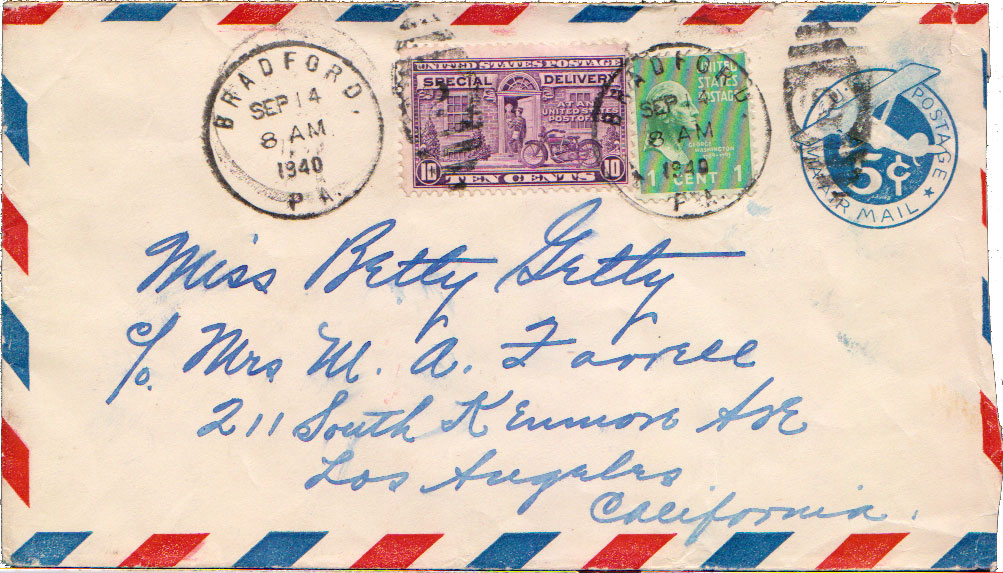 BRADFORD,
SEP 14
8 AM
1940
PA.
UNITED STATES POSTAGE
SPECIAL DELIVERY
AT ANY
UNITED STATES
POST OFFICE
10 TEN CENTS 10
UNITED
STATES
POSTAGE
GEORGE
WASHINGTON
1 CENT 1
BRADFORD
SEP 14
8 AM
1940
PA.
POSTAGE
5¢
VIA AIR MAIL
Miss Betty Getty
c/o. Mrs M. A. Farrell
211 South Kenmore Ave
Los Angeles
California.